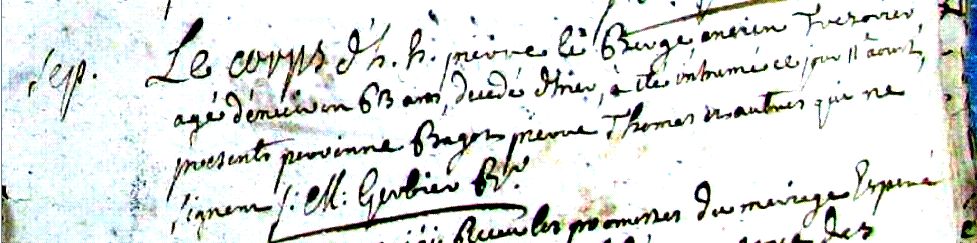 Sep. Le corps d'h. h. pierre le Bergé, ancien Tresorier,
agé d'environ 63 ans, decedé d'hier, a eté inhumé ce jour 11 aoust,
presents perrinne Bagot pierre Thomas et autres qui ne
signent S: M: Gerbier Rr.
les promesses du mariage
des